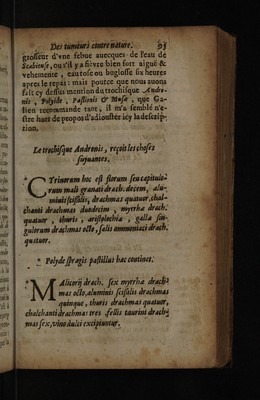 Des tumeurs contre nature. 95
grosseur d'vne febue auecques de l'eau de
Scabieuse, ou s'il y a fièvre bien fort aiguë &
vehemente, eau rose ou buglosse six heures
apres le repas: mais pource que nous auons
fait cy dessus mention du trochisque Andro-
nis, Polyide, Pastionis & Muse, que Ga-
lien recommande tant, il m'a semblé n'e-
stre hors de propos d'adiouster icy la descrip-
tion.
Le trochisque Andronis, reçoit les choses
suyuantes.
CYtinorum hoc est florum seu capitulo-
rum mali granati drach. decem, alu-
minis scissilis, drachmas quatuor, chal-
chanti drachmas duodecim, myrrhæ drach.
quatuor, thuris, aristolochiæ, gallæ sin-
gulorum drachmas octo, salis ammoniaci drach.
quatuor.
Polyde spragis pastillus hæc continet.
MAlicorij drach. sex myrrhæ drach-
mas octo, aluminis scissilis drachmas
quinque, thuris drachmas quatuor,
chalchanti drachmas tres fellis taurini drach-
mas sex, vino dulci excipiuntur.